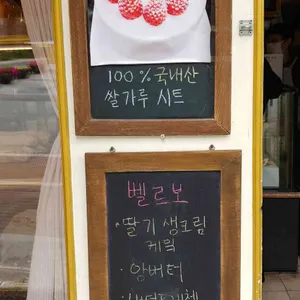 100% 국내산
쌀가루 시트
벨르보
· 딸기 생크림
케잌
· 앙버터